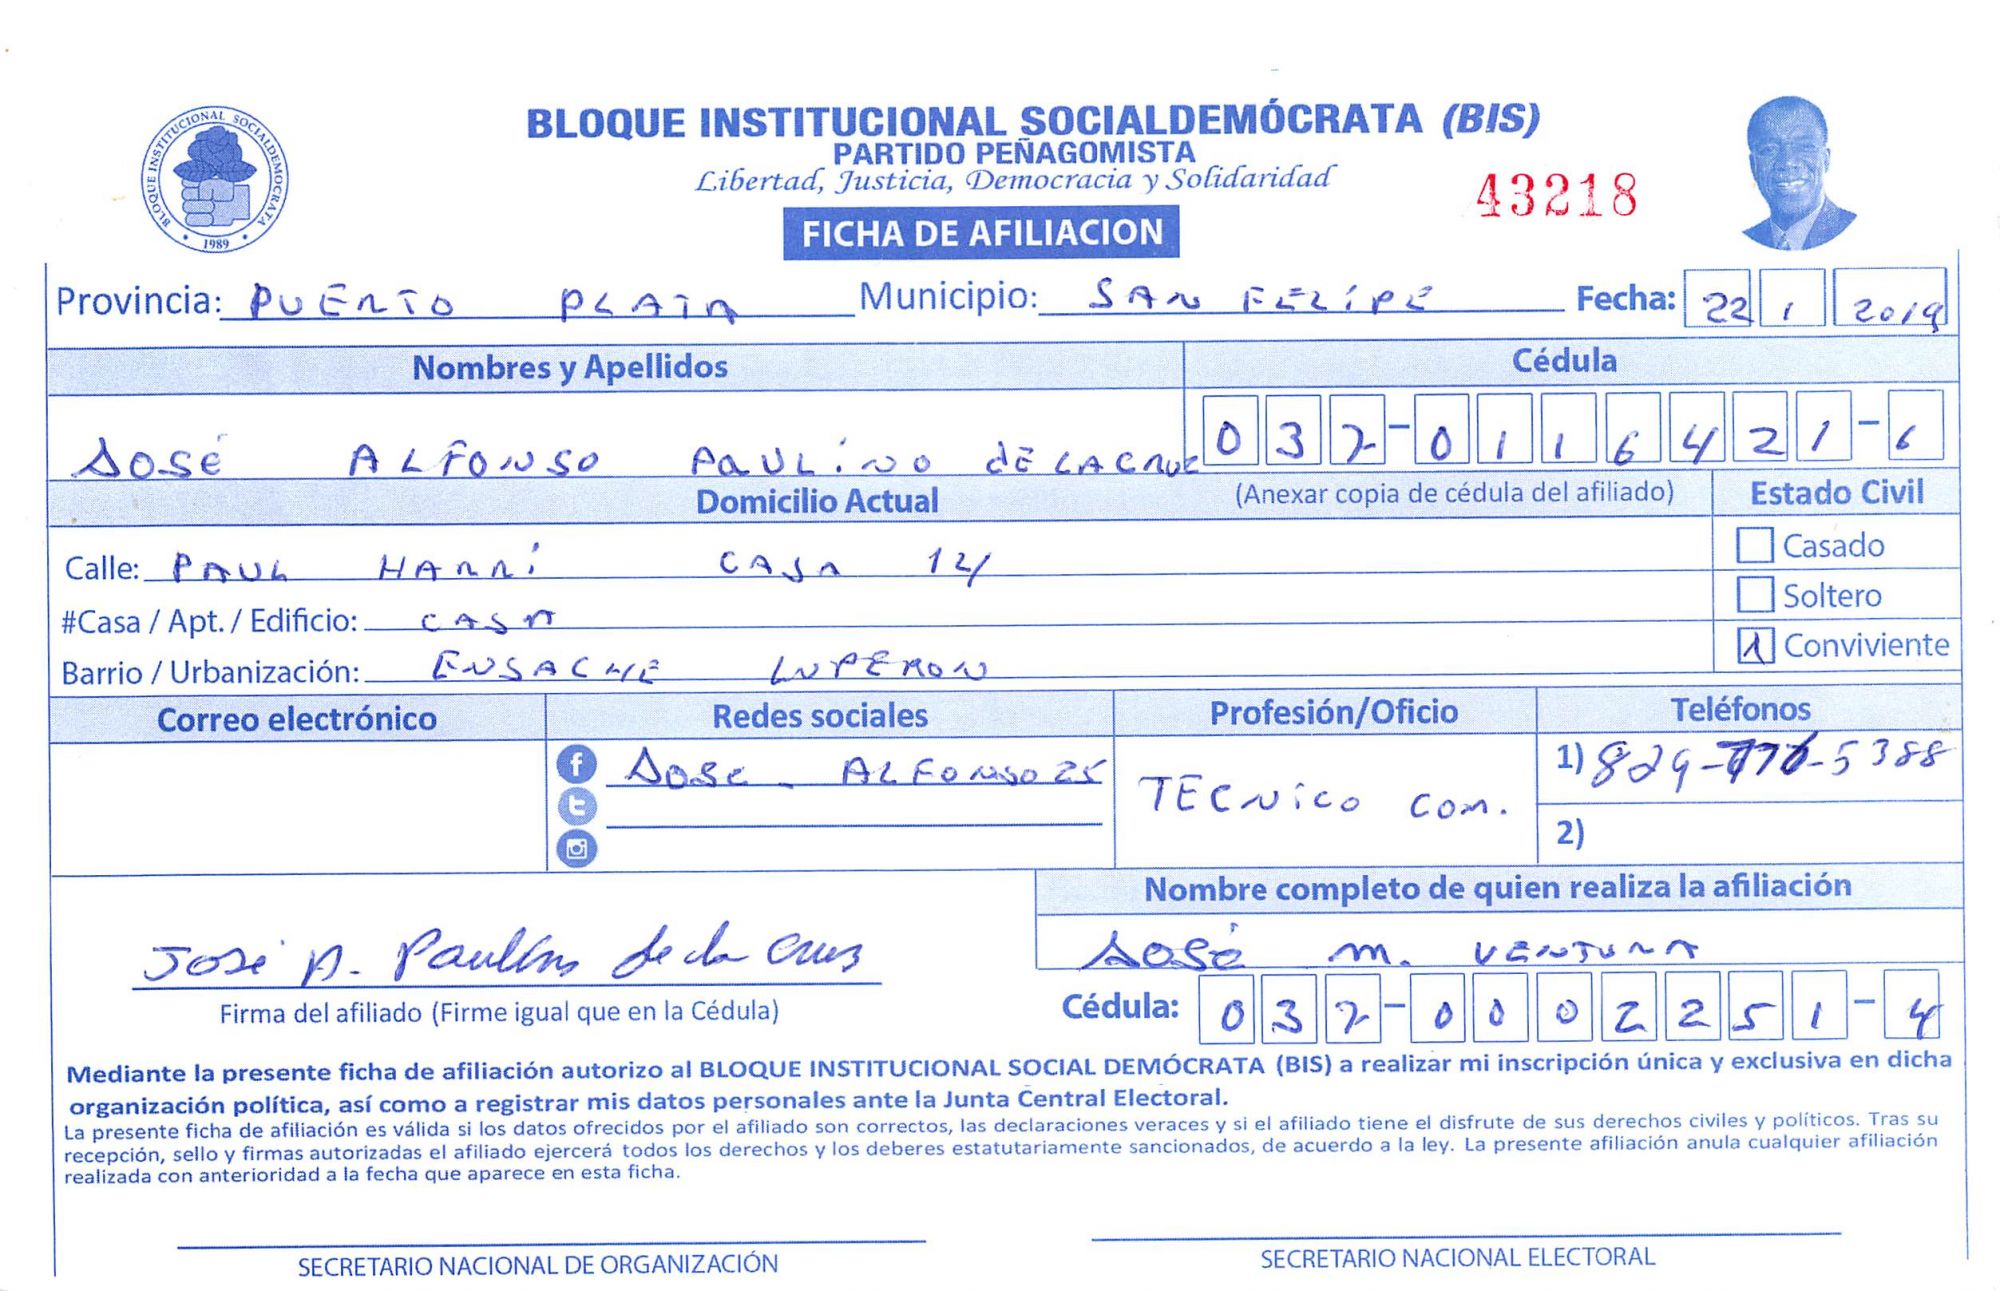 BLOQUE INSTITUCIONAL SOCIALDEMOCRATA
1989
BLOQUE INSTITUCIONAL SOCIALDEMÓCRATA (BIS)
PARTIDO PEÑAGOMISTA
Libertad, Justicia, Democracia y Solidaridad
43218
FICHA DE AFILIACION
Provincia: PUERTO PLATA Municipio: SAN FELIPE Fecha: 22 1 2019
Nombres y Apellidos Cédula
JOSÉ ALFONSO PAULINO DE LA CRUZ 032-0116421-6
Domicilio Actual (Anexar copia de cédula del afiliado) Estado Civil
Calle: PAUL HARRI CASA 12/ Casado
#Casa / Apt. / Edificio: CASA Soltero
Barrio / Urbanización: ENSACHE LUPERON Conviviente
Correo electrónico Redes sociales Profesión/Oficio Teléfonos
JOSE - ALFONSO 25 TECNICO COM. 1) 829-776-5388
2)
Nombre completo de quien realiza la afiliación
José A. Paulino de la Cruz JOSÉ M. VENTURA
Firma del afiliado (Firme igual que en la Cédula) Cédula: 032-0002251-4
Mediante la presente ficha de afiliación autorizo al BLOQUE INSTITUCIONAL SOCIAL DEMÓCRATA (BIS) a realizar mi inscripción única y exclusiva en dicha
organización política, así como a registrar mis datos personales ante la Junta Central Electoral.
La presente ficha de afiliación es válida si los datos ofrecidos por el afiliado son correctos, las declaraciones veraces y si el afiliado tiene el disfrute de sus derechos civiles y políticos. Tras su
recepción, sello y firmas autorizadas el afiliado ejercerá todos los derechos y los deberes estatutariamente sancionados, de acuerdo a la ley. La presente afiliación anula cualquier afiliación
realizada con anterioridad a la fecha que aparece en esta ficha.
SECRETARIO NACIONAL DE ORGANIZACIÓN SECRETARIO NACIONAL ELECTORAL